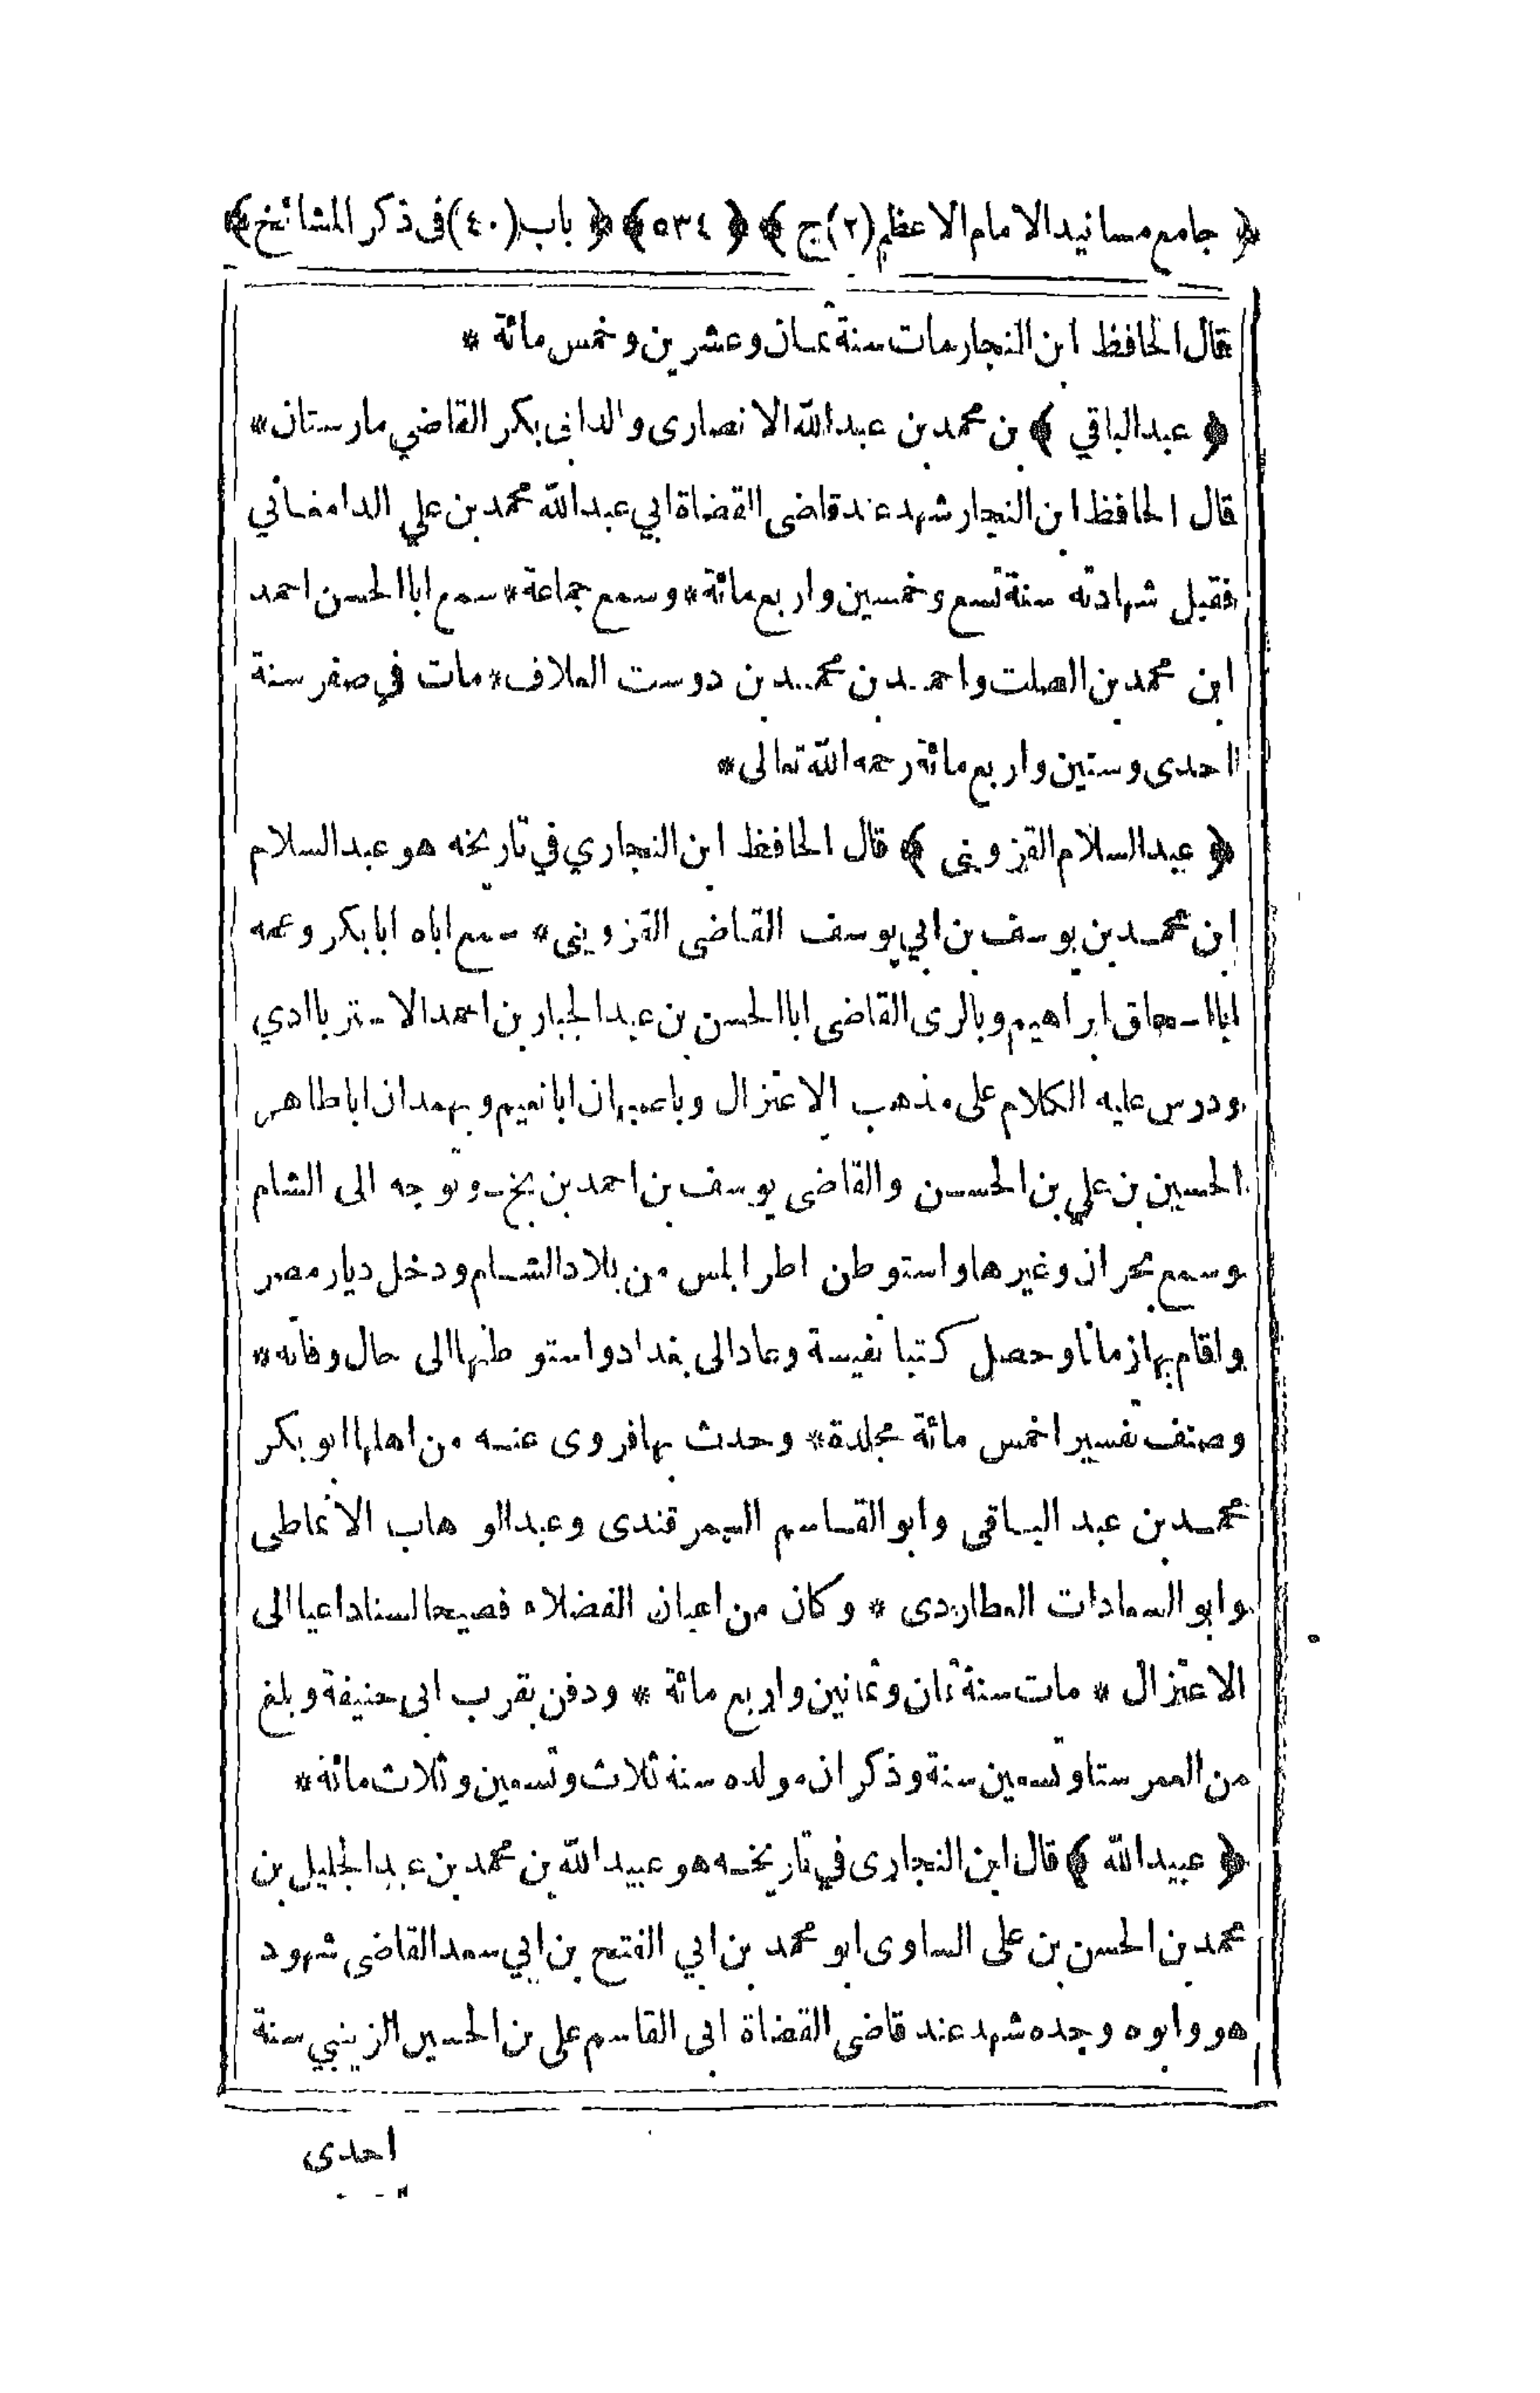 ﴿ جامع مسانيد الامام الاعظم (٢) ج ﴾ ﴿ ٥٣٤ ﴾ ﴿ باب (٤٠) فى ذكر المشائخ ﴾
قال الحافظ ابن النجار مات سنة ثمان وعشرين وخمس مائة *
﴿ عبد الباقي ﴾ بن محمد بن عبد الله الانصارى والد ابى بكر القاضي مارستان *
قال الحافظ ابن النجار شهد عند قاضى القضاة ابي عبد الله محمد بن علي الدامغاني
فقبل شهادته سنة تسع وخمسين واربع مائة * وسمع جماعة * سمع ابا الحسن احمد
ابن محمد بن الصلت واحمد بن محمد بن دوست العلاف * مات في صفر سنة
احدى وستين واربع مائة رحمه الله تعالى *
﴿ عبد السلام القزوينى ﴾ قال الحافظ ابن النجاري في تاريخه هو عبد السلام
ابن محمد بن يوسف بن ابي يوسف القاضى القزوينى * سمع اباه ابا بكر وعمه
ابا اسحاق ابراهيم وبالرى القاضى ابا الحسن بن عبد الجبار بن احمد الاستر باادي
ودرس عليه الكلام على مذهب الاعتزال وباصبهان ابا نعيم وبهمدان ابا طاهر
الحسين بن علي بن الحسن والقاضى يوسف بن احمد بن بخ وتوجه الى الشام
وسمع بحران وغيرها واستوطن اطرابلس من بلاد الشام ودخل ديار مصر
واقام بها زمانا وحصل كتبا نفيسة وعاد الى بغداد واستوطنها الى حال وفاته *
وصنف تفسيرا خمس مائة مجلدة * وحدث بها فروى عنه من اهلها ابو بكر
محمد بن عبد الباقى وابو القاسم السمرقندى وعبد الوهاب الانماطى
وابو السعادات العطاردى * وكان من اعيان الفضلاء فصيحا لسنا داعيا الى
الاعتزال * مات سنة ثمان وثمانين واربع مائة * ودفن بقرب ابى حنيفة وبلغ
من العمر ستا وتسعين سنة وذكر ان مولده سنة ثلاث وتسعين وثلاث مائة *
﴿ عبيد الله ﴾ قال ابن النجارى في تاريخه هو عبيد الله بن محمد بن عبد الجليل بن
محمد بن الحسن بن على الساوى ابو محمد بن ابي الفتح بن ابي سعد القاضى شهود
هو وابوه وجده شهد عند قاضى القضاة ابى القاسم على بن الحسين الزينبي سنة
احدى